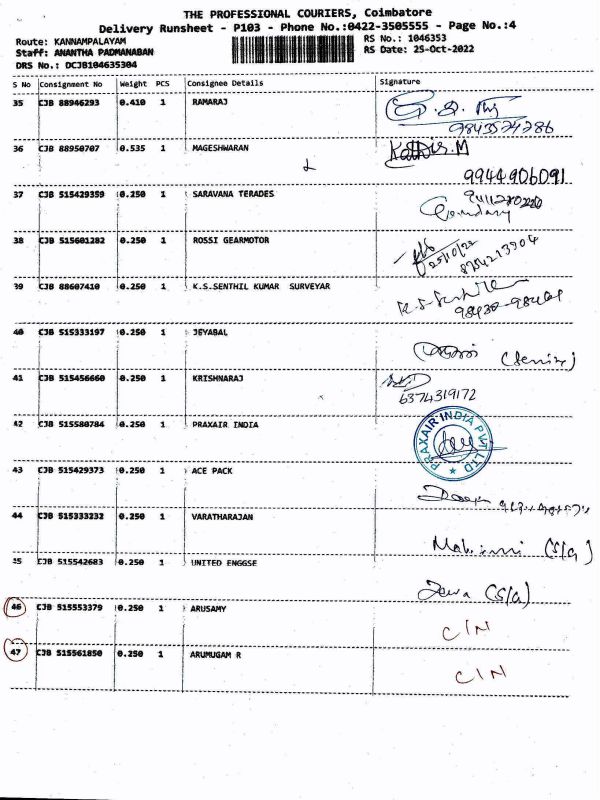 THE PROFESSIONAL COURIERS, Coimbatore
Delivery Runsheet - P103 - Phone No.:0422-3505555 - Page No.:4
Route: KANNAMPALAYAM RS No.: 1046353
Staff: ANANTHA PADMANABAN RS Date: 25-Oct-2022
DRS No.: DCJB104635304
S No Consignment No Weight PCS Consignee Details Signature
35 CJB 88946293 0.410 1 RAMARAJ
9843574286
36 CJB 88950707 0.535 1 MAGESHWARAN Kathir.M
9944906091
37 CJB 515429359 0.250 1 SARAVANA TERADES
38 CJB 515601282 0.250 1 ROSSI GEARMOTOR
25/10/22
8754213904
39 CJB 88607410 0.250 1 K.S.SENTHIL KUMAR SURVEYAR
40 CJB 515333197 0.250 1 JEYABAL
41 CJB 515456660 0.250 1 KRISHNARAJ
6374319172
42 CJB 515580784 0.250 1 PRAXAIR INDIA
PRAXAIR INDIA PVT LTD
43 CJB 515429373 0.250 1 ACE PACK
44 CJB 515333232 0.250 1 VARATHARAJAN
(S/G)
45 CJB 515542683 0.250 1 UNITED ENGGSE
(S/G)
46 CJB 515553379 0.250 1 ARUSAMY
C/N
47 CJB 515561850 0.250 1 ARUMUGAM R
C/N